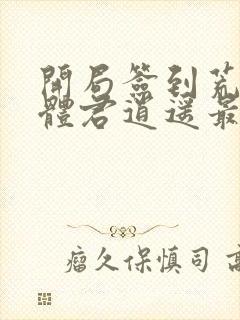 開局簽到荒
體君逍遙最
瘤久保慎司 高